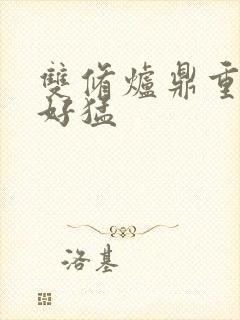 雙脩爐鼎重
好猛
洛基